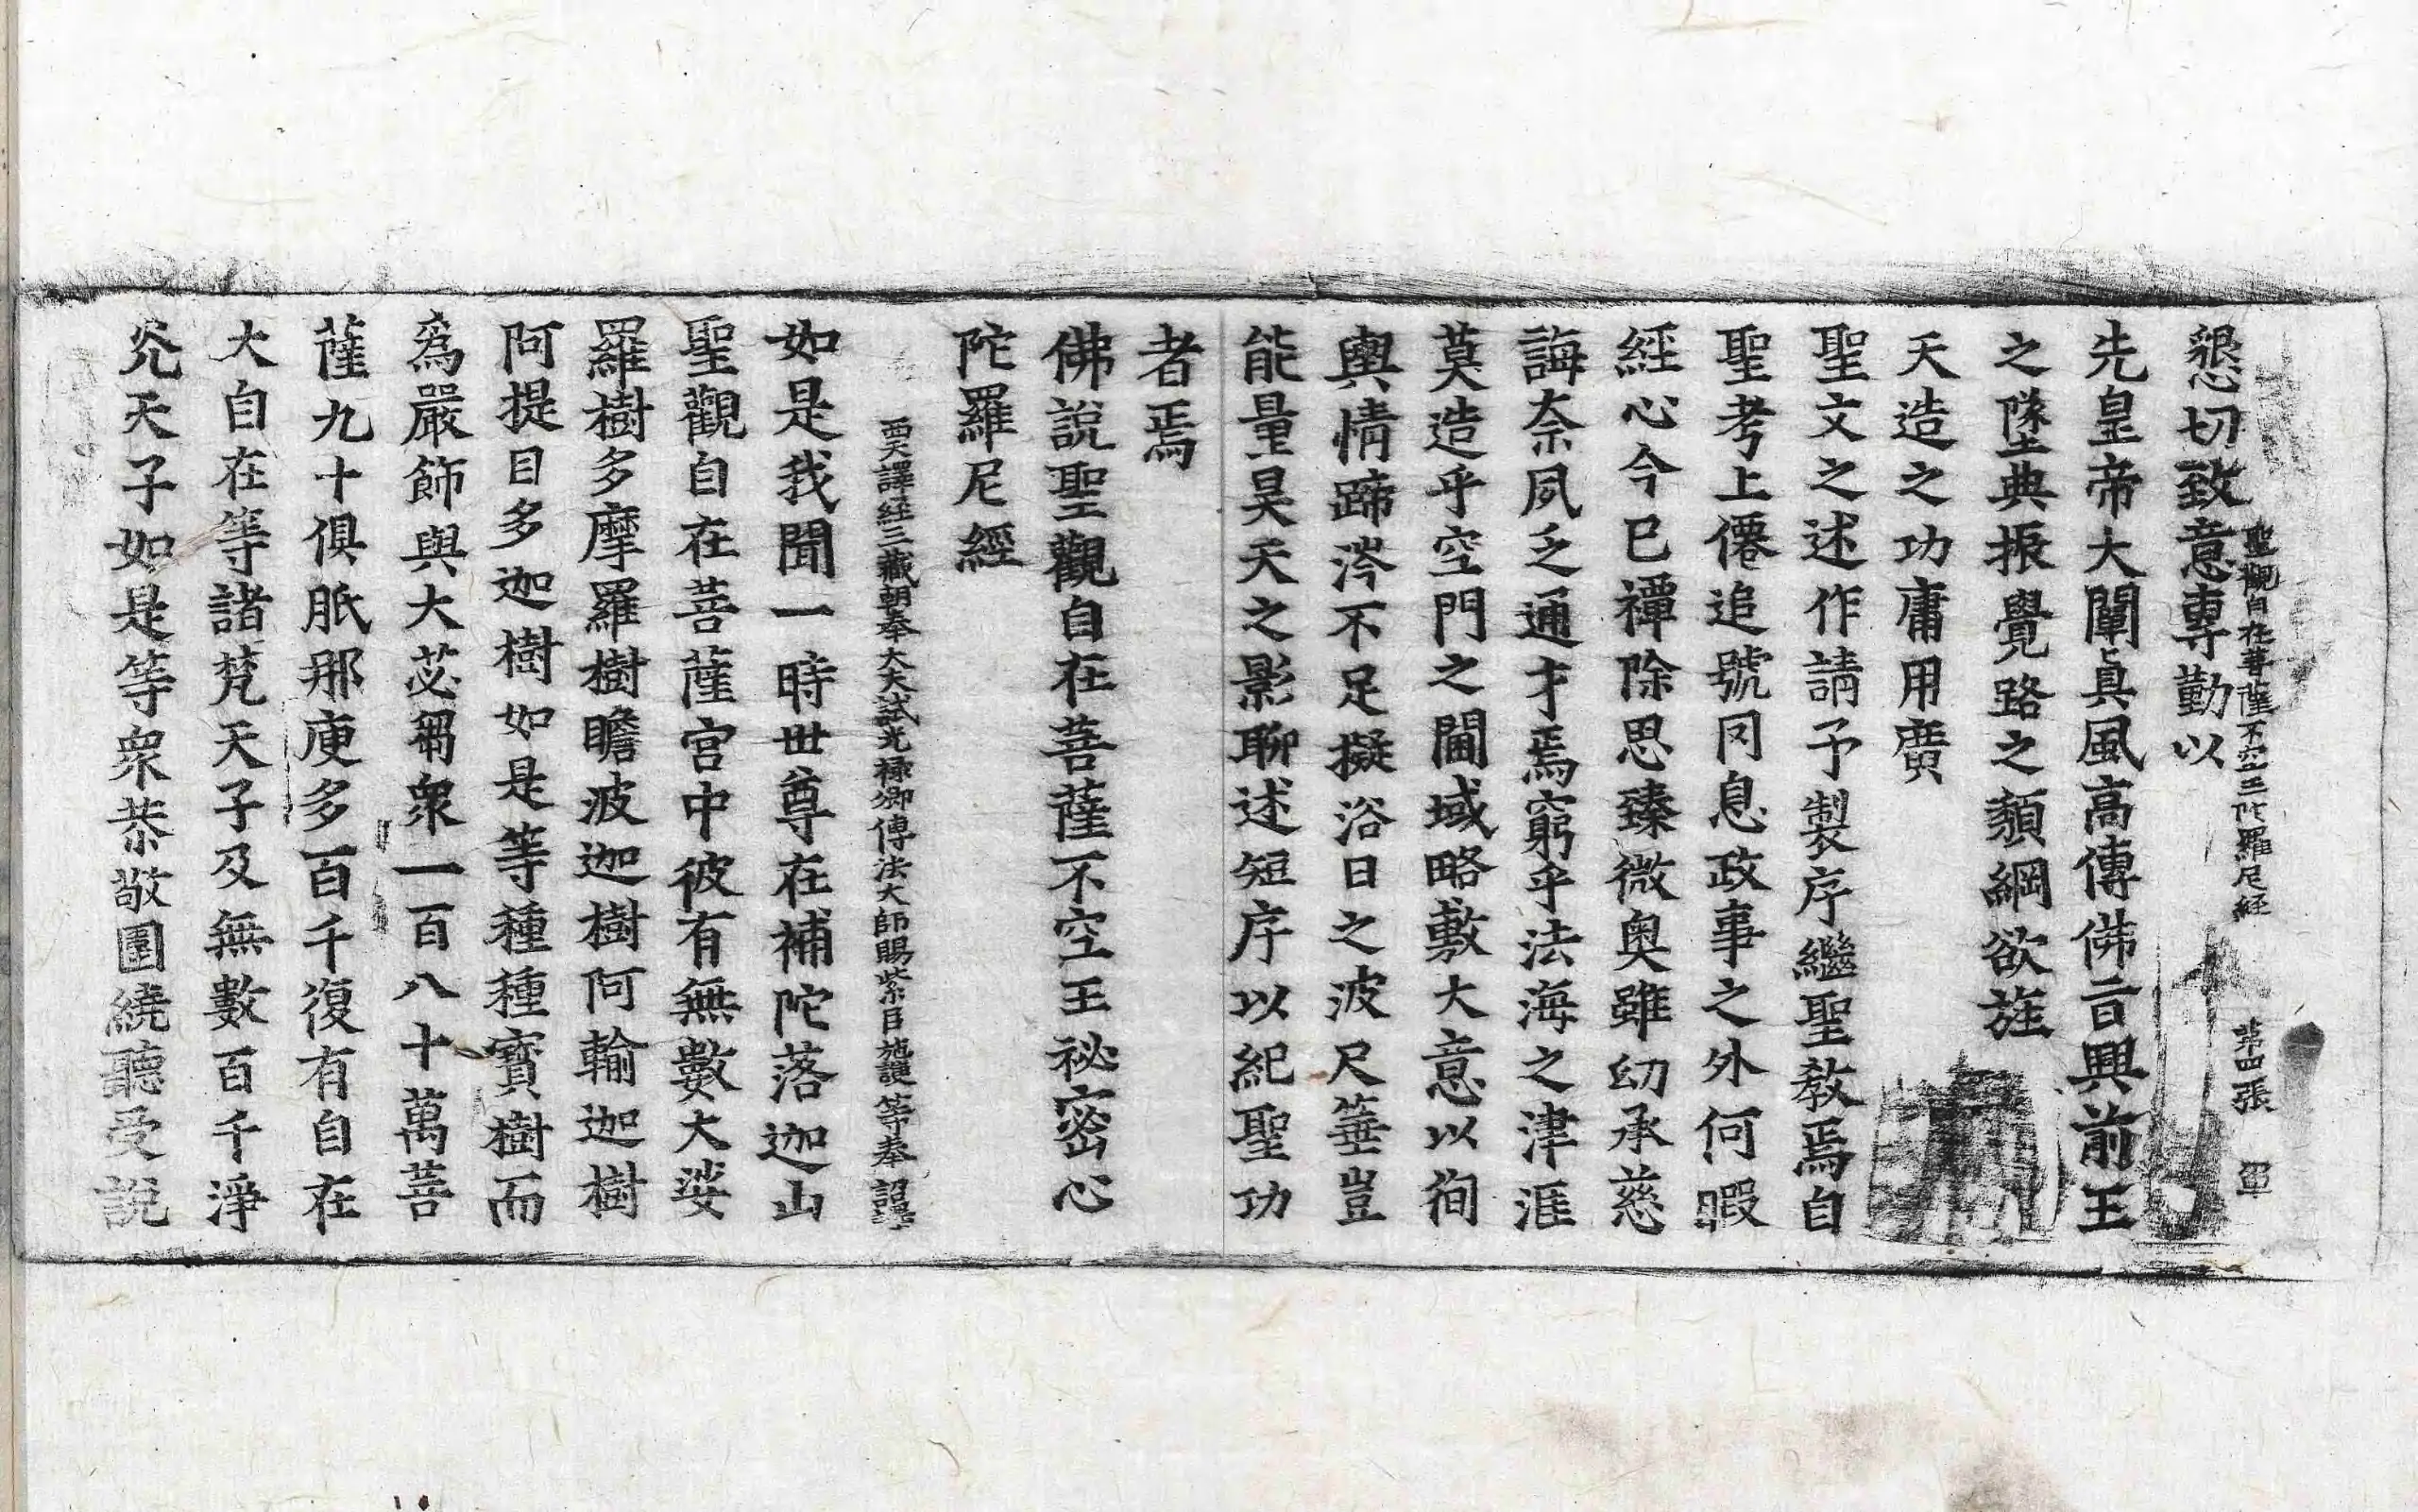 聖觀自在菩薩不空王陀羅尼經 第四張 軍
懇切致意專勤以
先皇帝大闡眞風高傳佛旨興前王
之墜典振覺路之頹綱欲旌
天造之功庸用廣
聖文之述作請予製序繼聖敎焉自
聖考上僊追號罔息政事之外何暇
經心今已禫除思臻微奧雖幼承慈
誨柰夙乏通才焉窮乎法海之津涯
莫造乎空門之閫域略敷大意以徇
輿情蹄涔不足擬浴日之波尺箠豈
能量昊天之影聊述短序以紀聖功
者焉
佛說聖觀自在菩薩不空王祕密心
陀羅尼經
西天譯經三藏朝奉大夫試光祿卿傳法大師賜紫臣施護等奉 詔譯
如是我聞一時世尊在補陀落迦山
聖觀自在菩薩宮中彼有無數大娑
羅樹多摩羅樹瞻波迦樹阿輸迦樹
阿提目多迦樹如是等種種寶樹而
爲嚴飾與大苾芻衆一百八十萬菩
薩九十俱胝那庾多百千復有自在
大自在等諸梵天子及無數百千淨
光天子如是等衆恭敬圍繞聽受說